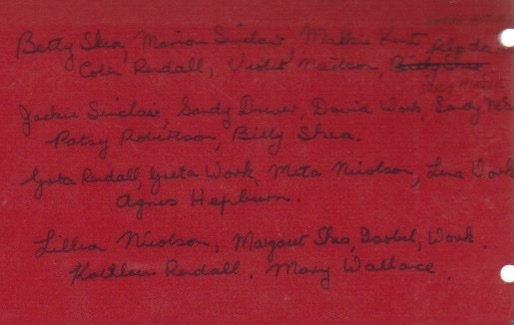 Betty Shea, Marion Sinclair, Kent
Colin Rendall, Violet Mattson, Billy Shea
Jackie Sinclair, Sandy Drever, David Work, Sandy
Patsy Robertson, Billy Shea.
Greta Rendall, Greta Work, Meta Nicolson, Lena Work
Agnes Hepburn.
Lillian Nicolson, Margaret Shea, Isobel, Work.
Kathleen Rendall, Mary Wallace.